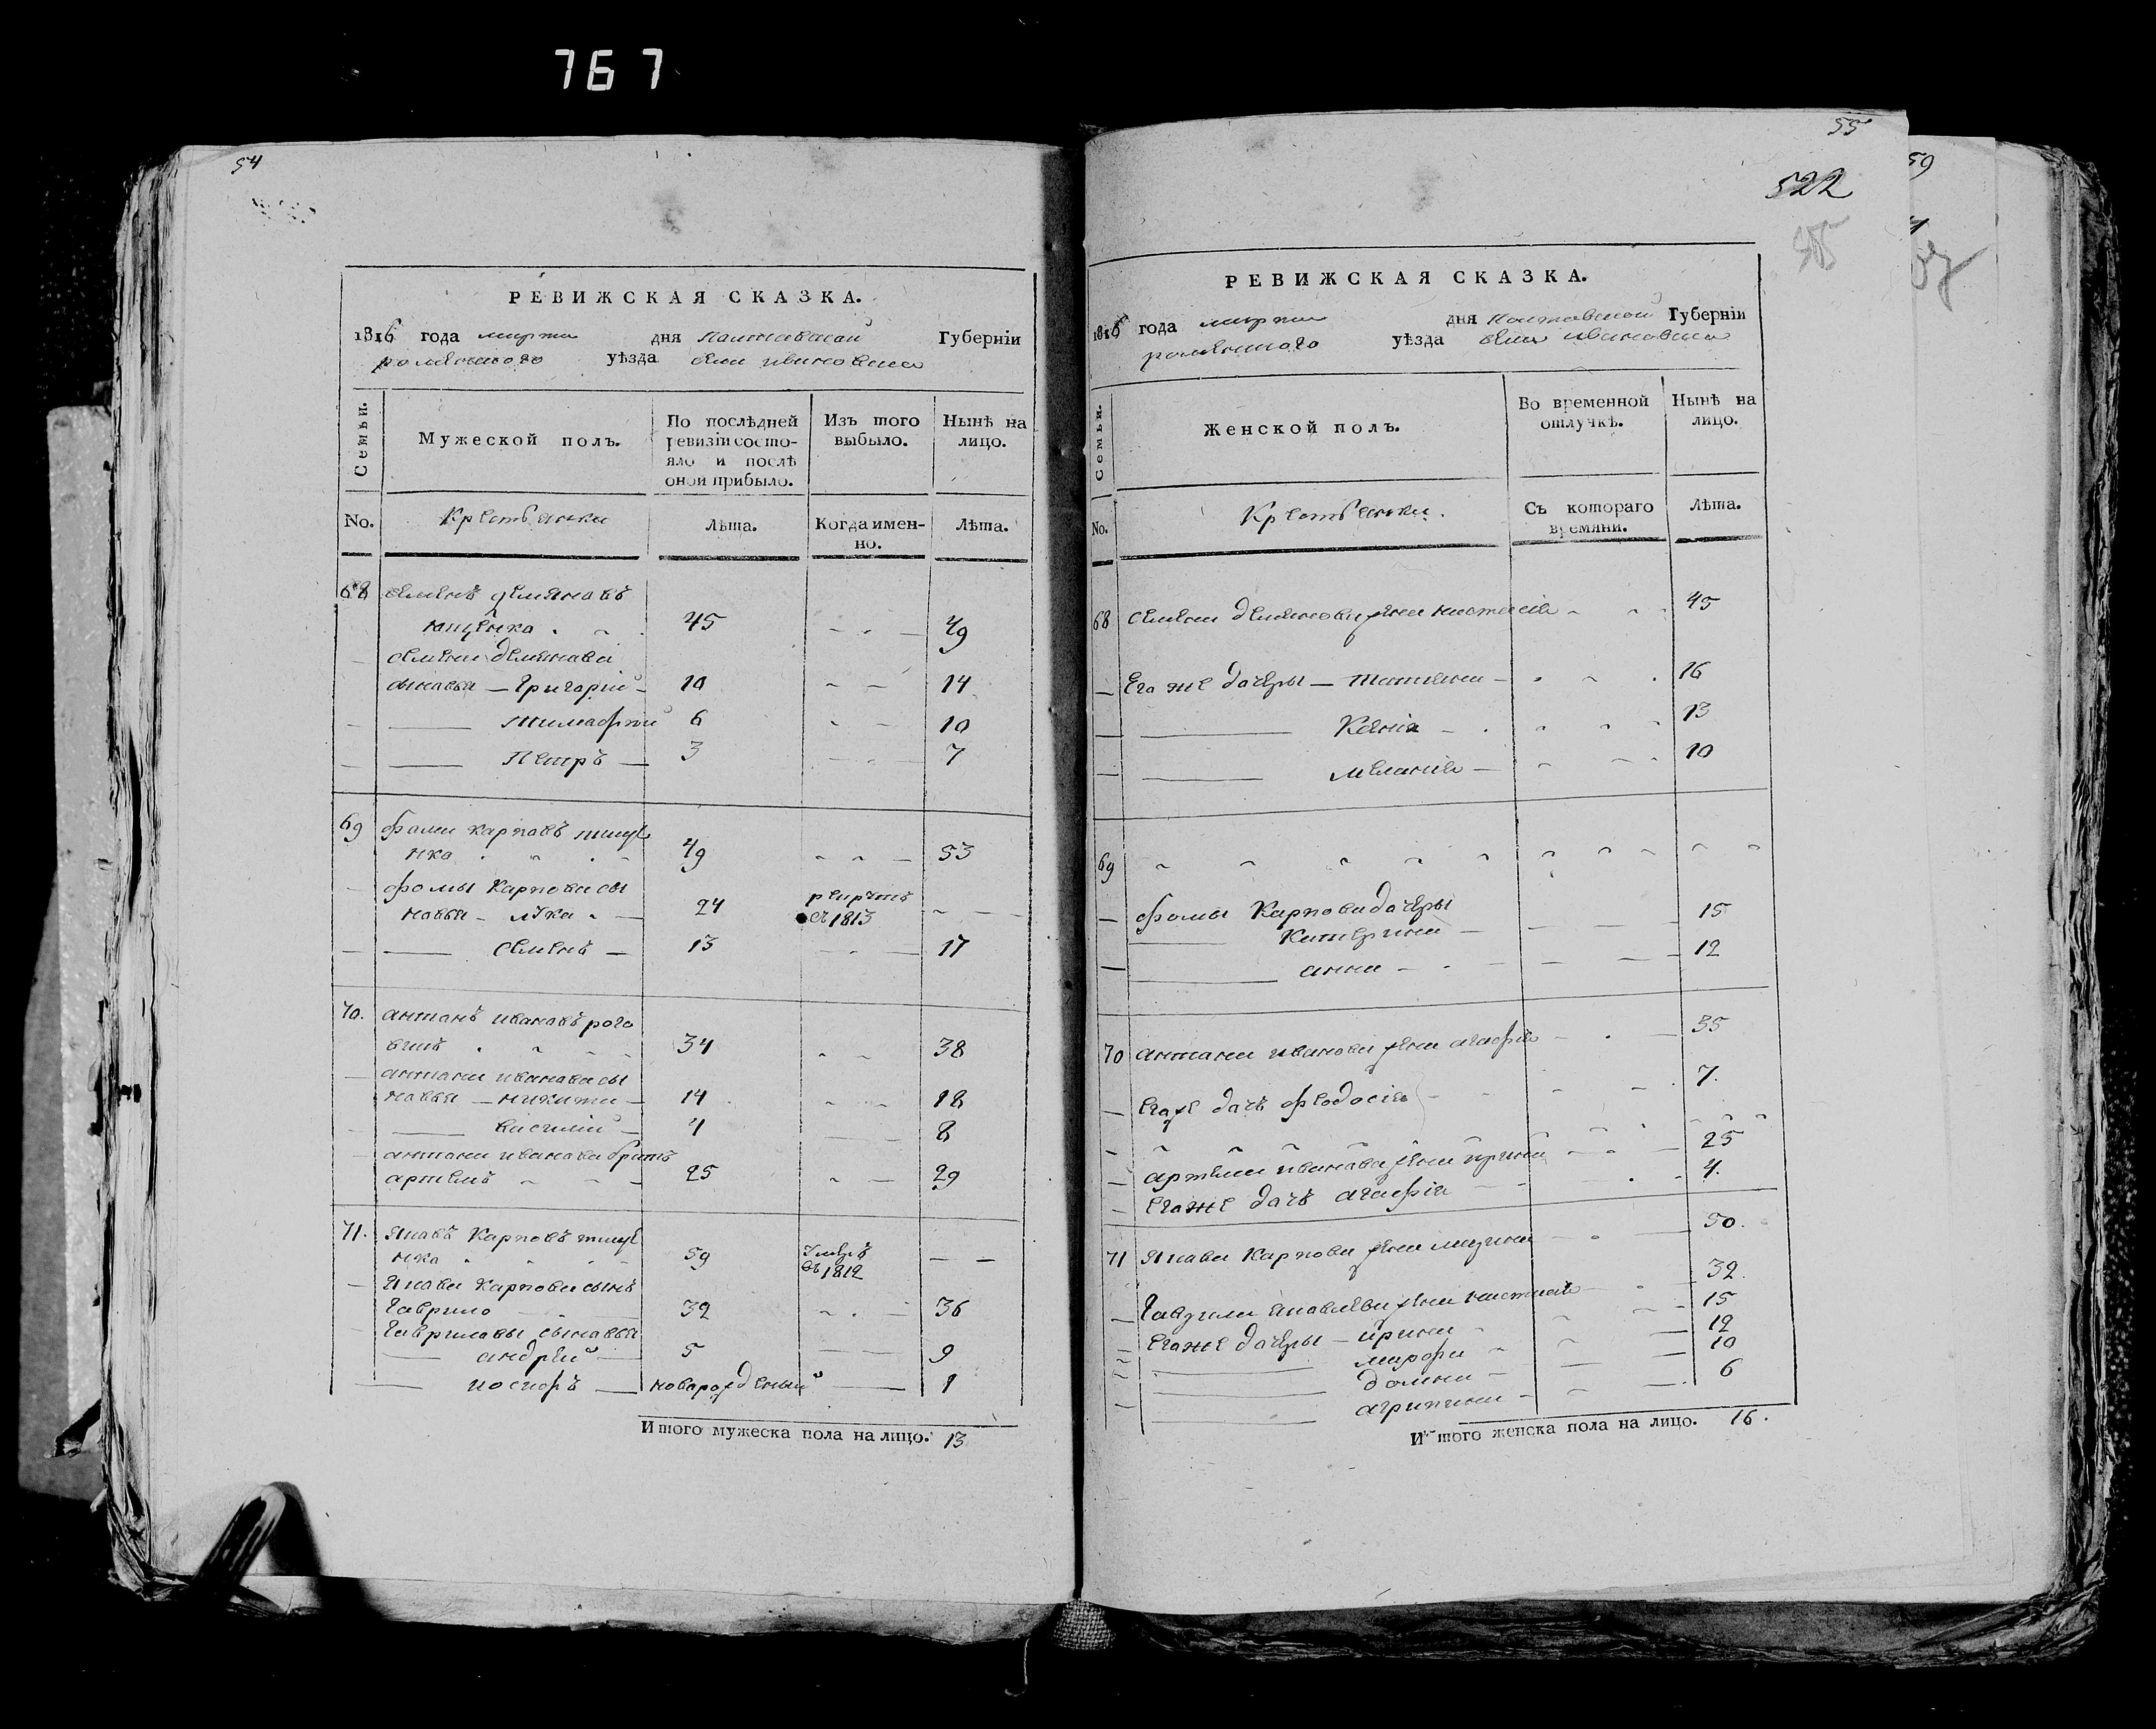 767
54
РЕВИЖСКАЯ СКАЗКА.
1816 года марта дня Полтавской Губерніи
роменского уѣзда села ивановка
Семьи.
Мужеской полъ.
По послѣдней ревизіи состояло и послѣ оной прибыло.
Изъ того выбыло.
Нынѣ на лицо.
No.
Крестьянки
Лѣта.
Когда именно.
Лѣта.
68 семенъ демяновъ
ющенко 45 49
семена демянова
сыновья — Григорий 10 14
тимофѣй 6 10
Петръ 3 7
69 фома карповъ тище
нко 49 53
фомы Карпова сы
новья — лука 24 рекрутъ въ 1813
семенъ 13 17
70. антонъ ивановъ рого
вик 34 38
антона иванова сы
новья — никита 14 18
василий 4 8
антона иванова братъ
артемъ 25 29
71. Яковъ Карповъ тище
нко 59 Умеръ въ 1812
Якова Карпова сынъ
Гаврило 32 36
Гавриловы сыновья
андрей 5 9
иосифъ новорожденный 1
Итого мужеска пола на лицо. 13
55
522
РЕВИЖСКАЯ СКАЗКА.
1816 года марта дня Полтавской Губерніи
роменского уѣзда села ивановка
Семьи.
Женской полъ.
Во временной отлучкѣ.
Нынѣ на лицо.
No.
Крестьянки.
Съ котораго времяни.
Лѣта.
68 семена демянова жена настасія 45
Его же дочеры — татияна 16
Ксенія 13
меланія 10
69
фомы Карпова дочеры
Катерина 15
анна 12
70 антона иванова жена агафія 35
Егоже дочь феодосія 7.
артема иванова жена ирина 25
егоже дочь агафія 4.
71 Якова Карпова жена 50.
Гаврила яковлева жена настасия 32.
егоже дочеры — ирина 15
марфа 12
домна 10
агрипина 6
Итого женска пола на лицо. 16.
59